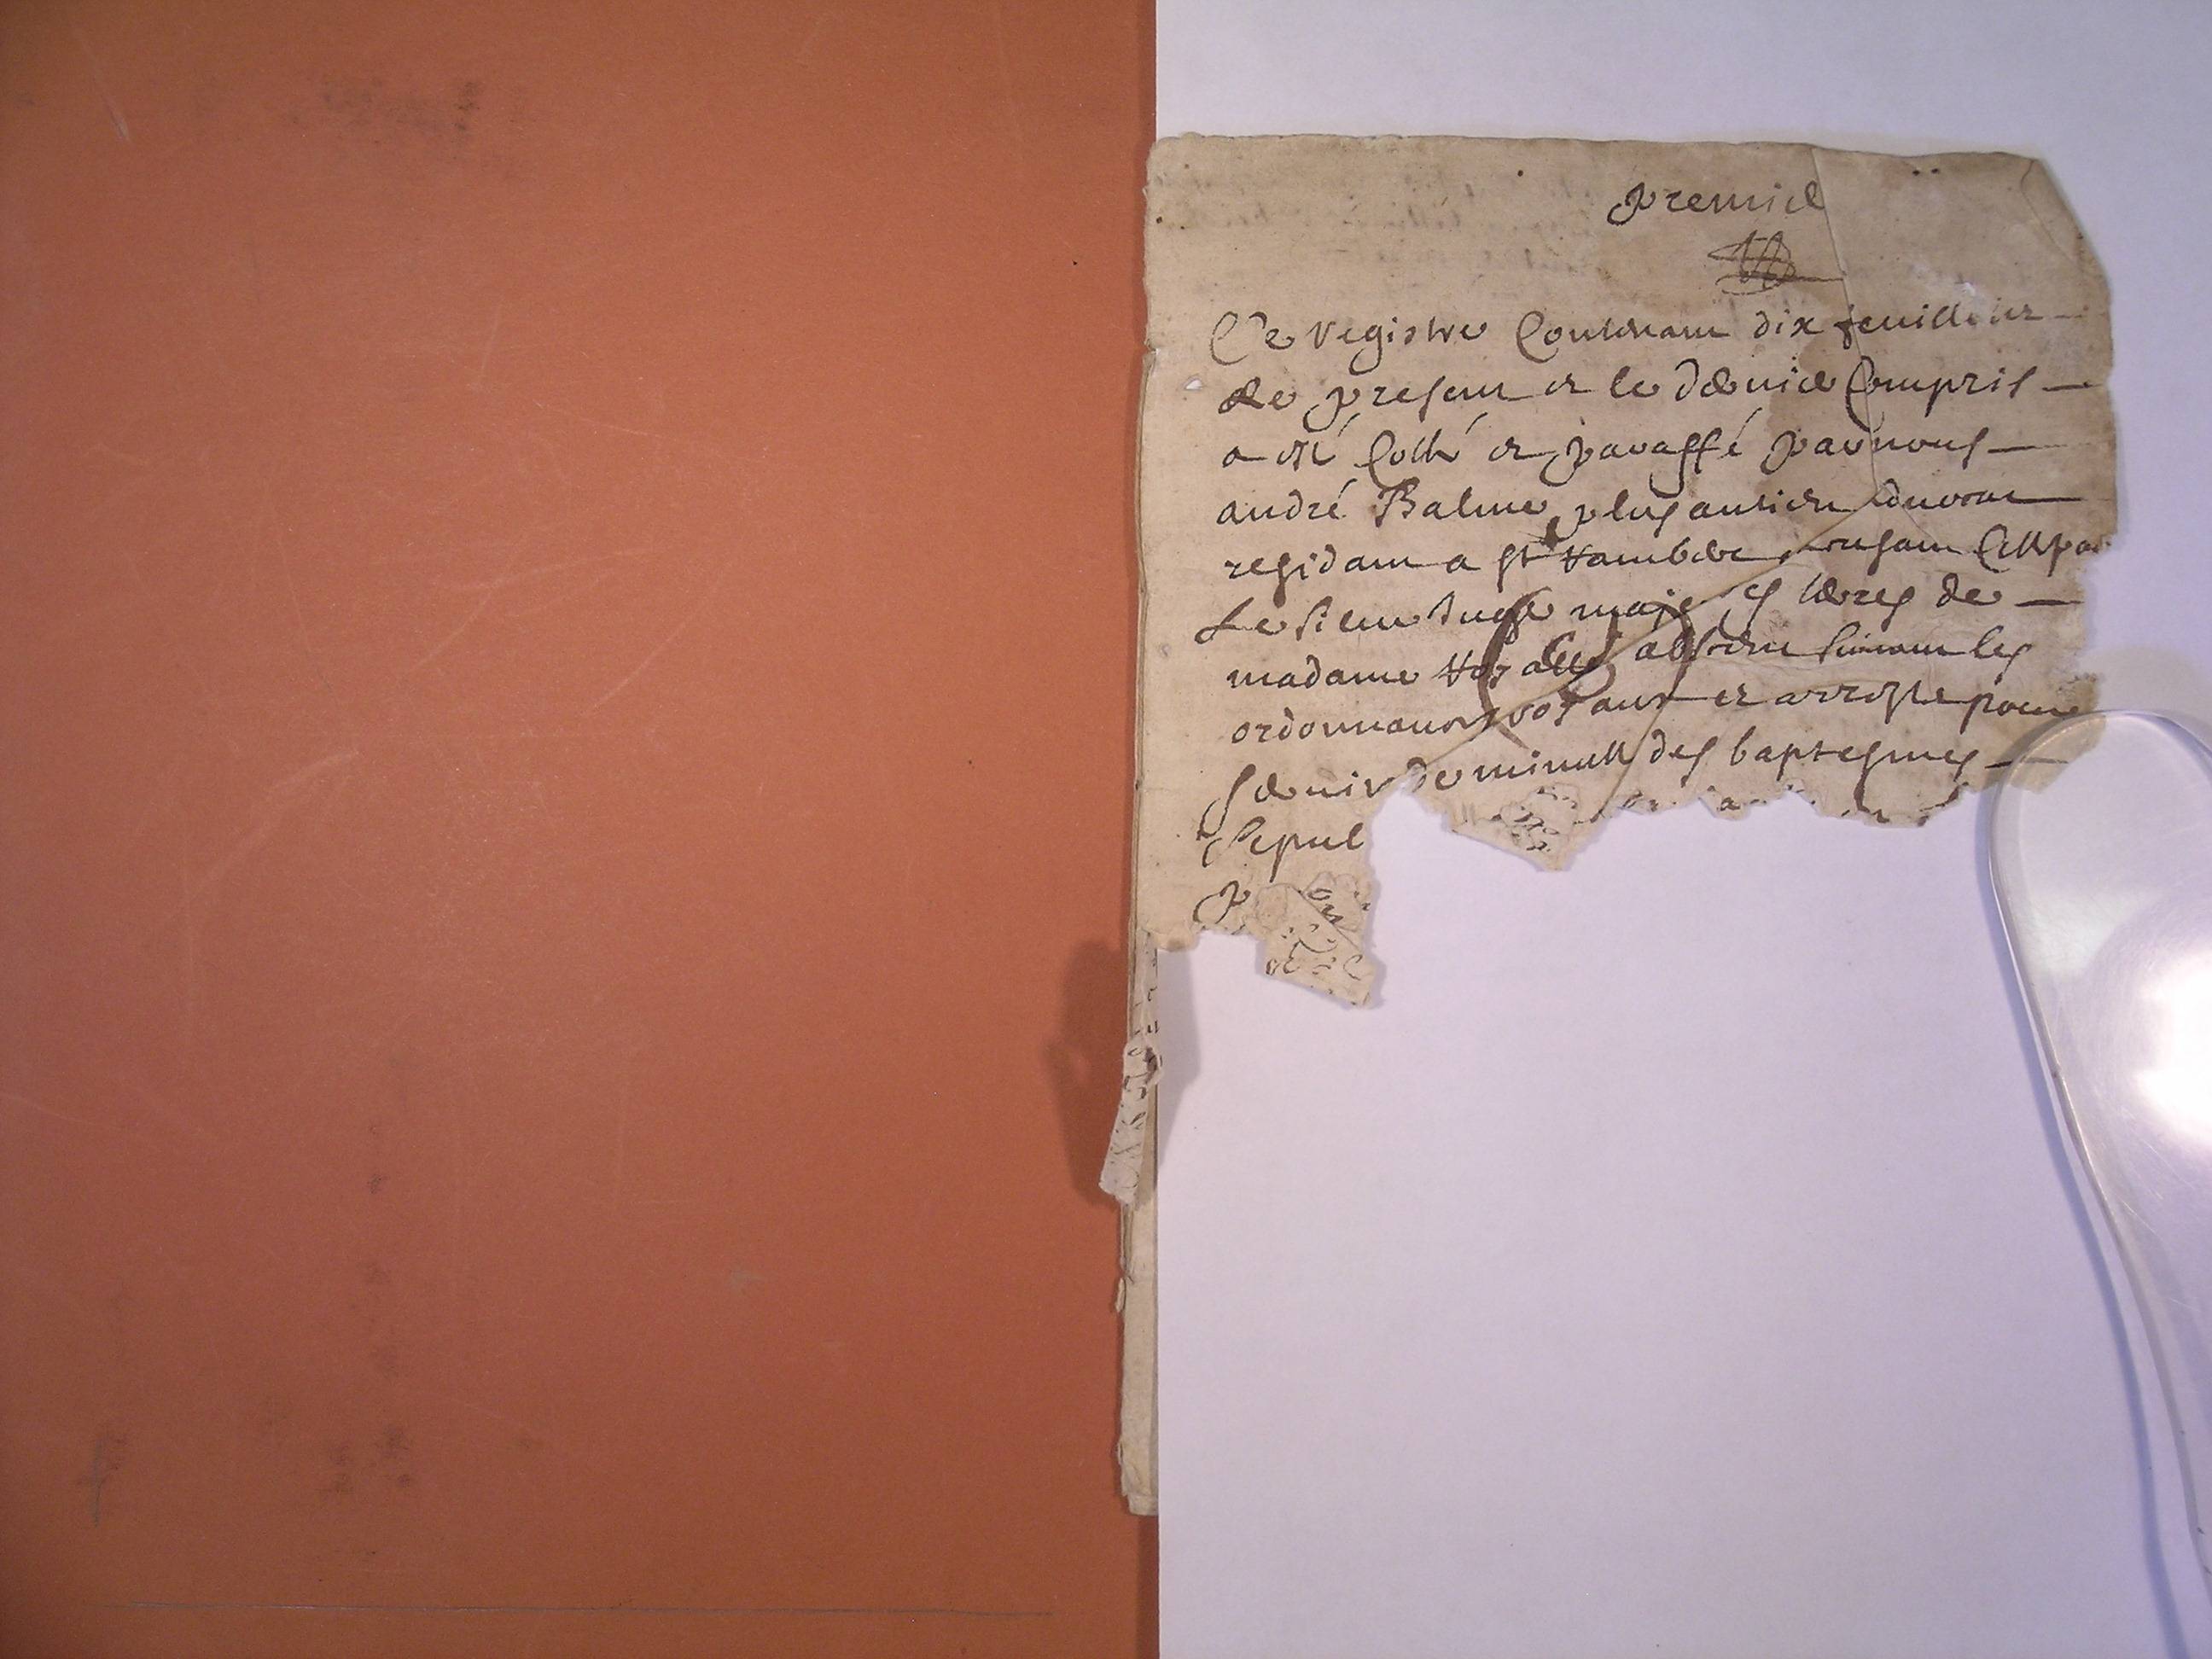 premier
Ce registre Contenant dix feuillets
Le present et le dernier Compris
a esté Cotté et paraffé par nous
andré Balme plus antien
residant a st Rambert
Le sieur Juge maje es terres de
madame absent suivant les
ordonnances et arreste pour
servir de minutte des baptesmes
Sepul
p